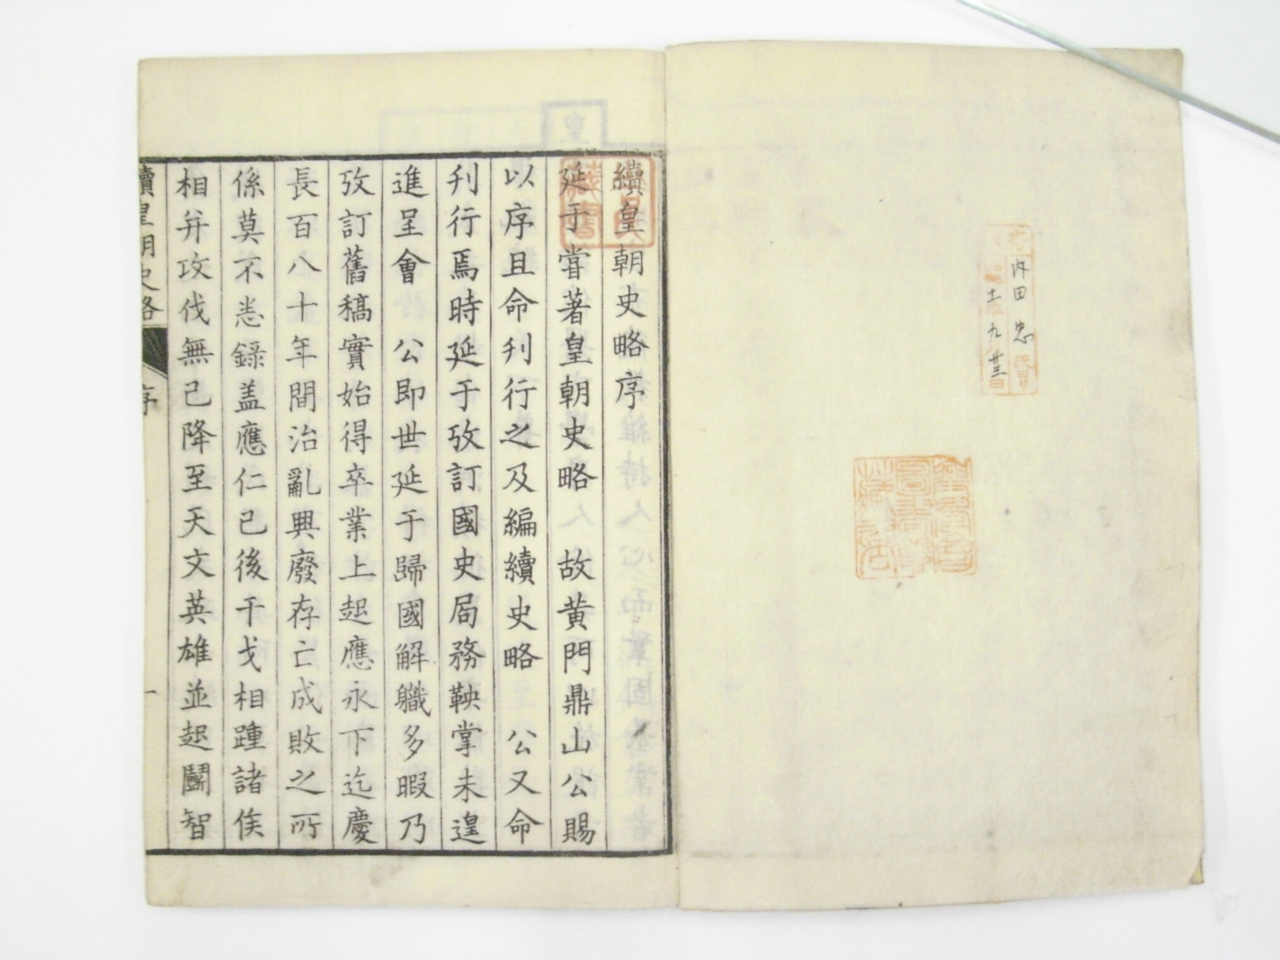 續皇朝史略序
延于嘗著皇朝史略　故黄門鼎山公賜
以序且命刋行之及編續史略　公又命
刋行焉時延于攷訂國史局務鞅掌未遑
進呈會　公即世延于歸國解職多暇乃
攷訂舊稿實始得卒業上起應永下迄慶
長百八十年間治亂興廢存亡成敗之所
係莫不悉錄盖應仁已後干戈相踵諸侯
相并攻伐無已降至天文英雄並起鬪智
續皇朝史略
序
一
内田忠
九